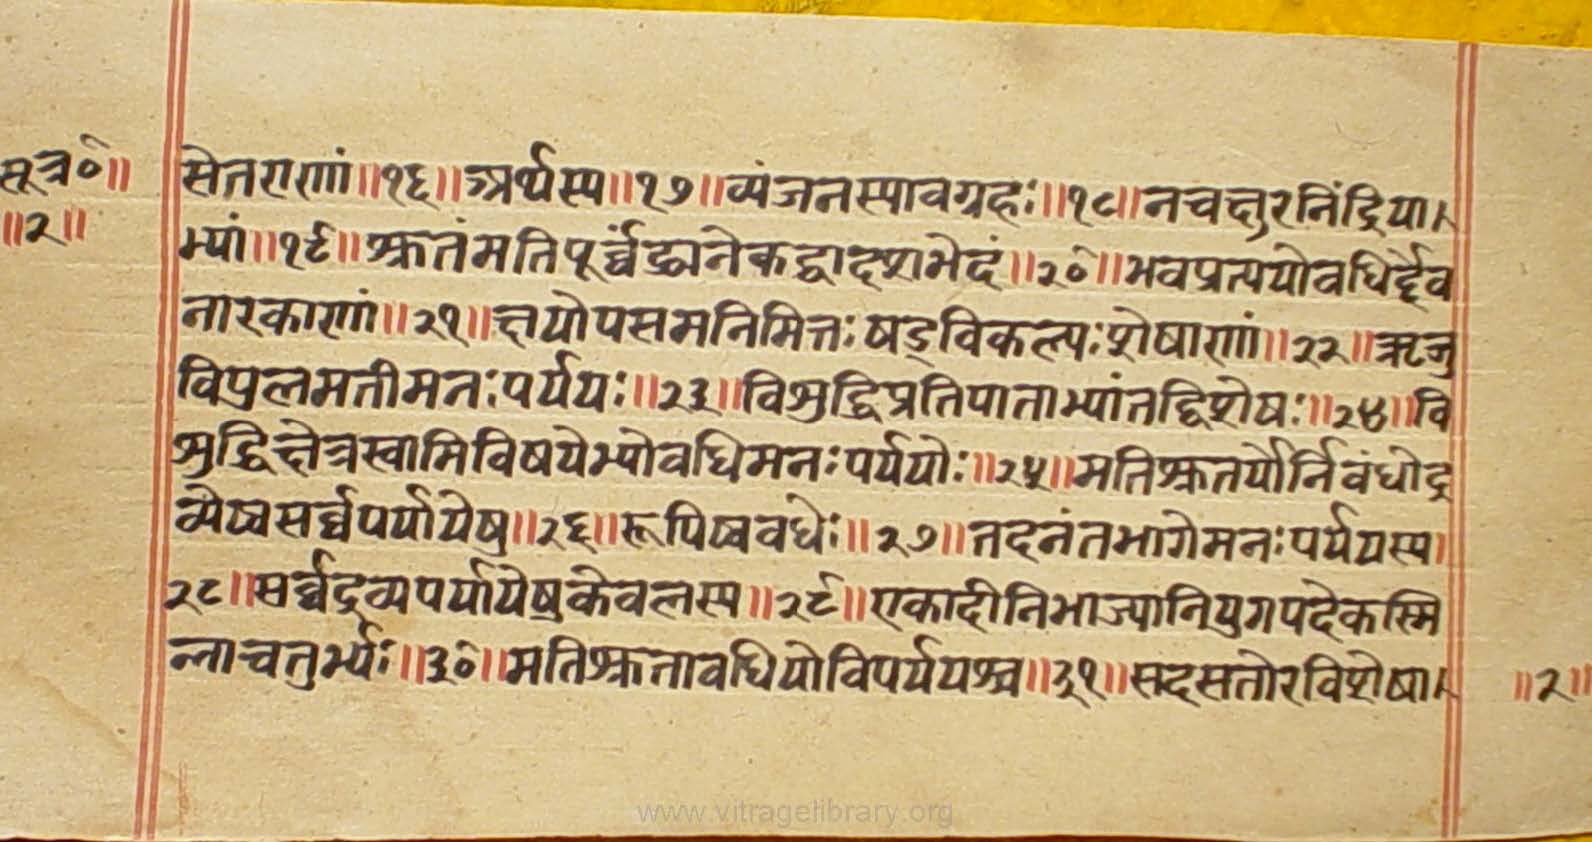 सूत्र०॥
॥२॥
सेतराणां॥१६॥अर्थस्य॥१७॥व्यंजनस्यावग्रहः॥१८॥नचक्षुरनिंद्रिया
भ्यां॥१९॥श्रुतंमतिपूर्व्वंद्व्यनेकद्वादशभेदं॥२०॥भवप्रत्ययोवधिर्द्देव
नारकाणां॥२१॥क्षयोपसमनिमित्तः षड्विकल्पः शेषाणां॥२२॥ऋजु
विपुलमतीमनः पर्ययः॥२३॥विशुद्धिप्रतिपाताभ्यांतद्विशेषः॥२४॥वि
शुद्धिक्षेत्रस्वामिविषयेभ्योवधिमनः पर्ययोः॥२५॥मतिश्रुतर्योर्निबंधोद्र
व्येष्वसर्व्वपर्यायेषु॥२६॥रूपिष्ववधेः॥२७॥तदनंतभागेमनः पर्ययस्य।
२८॥सर्व्वद्रव्यपर्यायेषुकेवलस्य॥२९॥एकादीनिभाज्यानियुगपदेकस्मि
न्नाचतुर्भ्यः॥३०॥मतिश्रुतावधियोविपर्ययश्च॥३१॥सदसतोरविशेषा
॥२॥
www.vitragelibrary.org